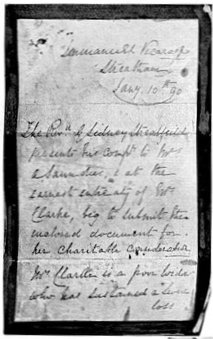 Immanuel Vicarage
Streatham
Jany. 10th 90
The Revd. G Sidney Streatfeild
presents his compts to Mr
& at the
earnest entreaty of Mrs
Clarke, beg to submit the
enclosed document for
her charitable consideration
Mrs is a poor widow
who has sustained a
loss